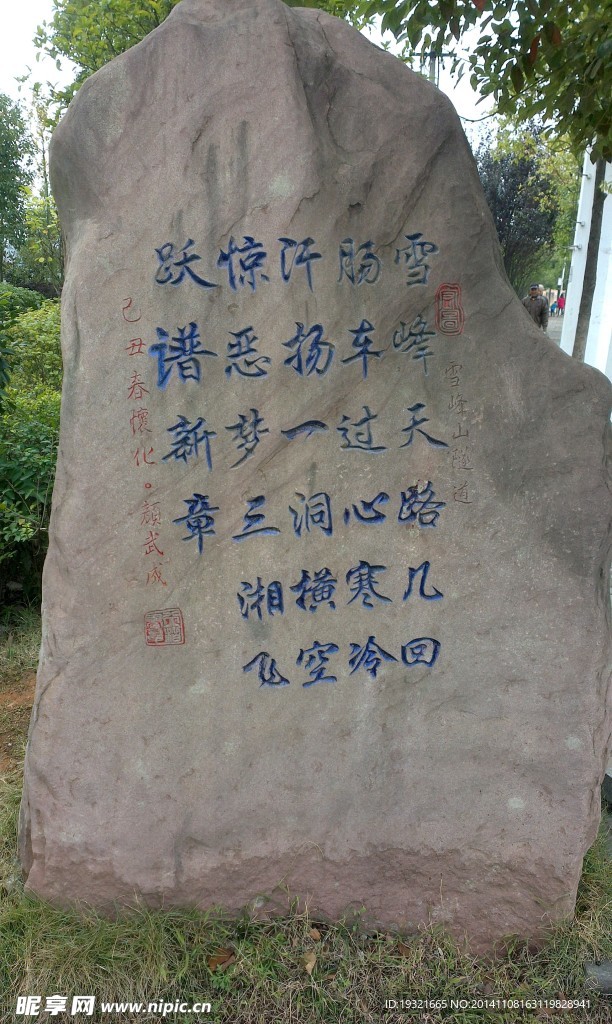 雪峰山隧道
雪峰天路几回
肠车过心寒冷
汗扬一洞横空
惊恶梦三湘飞
跃谱新章
己丑春懷化。顏武成
昵享网 www.nipic.cn
ID:19321665 NO:20141108163119828941